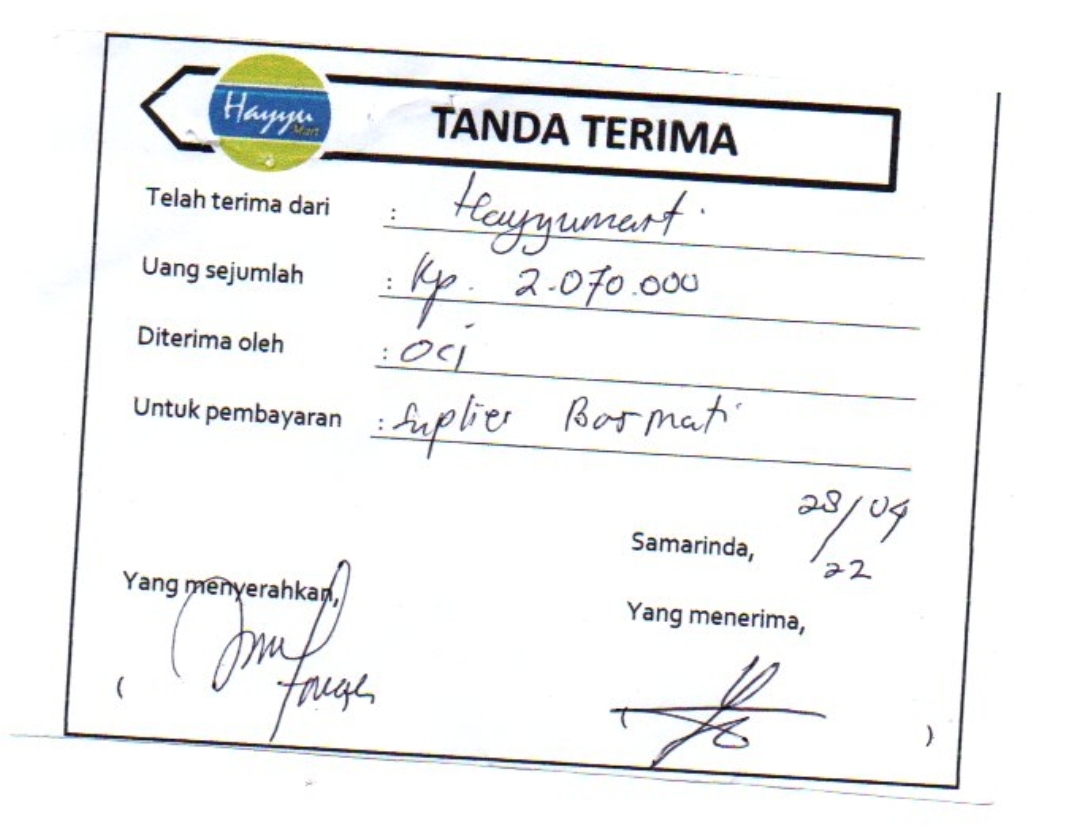 Hayyu
Mart
TANDA TERIMA
Telah terima dari : Hayyumart
Uang sejumlah : Rp. 2.070.000
Diterima oleh : Oci
Untuk pembayaran : Suplier
28/04
Samarinda, 22
Yang menyerahkan,
Yang menerima,
( ( )